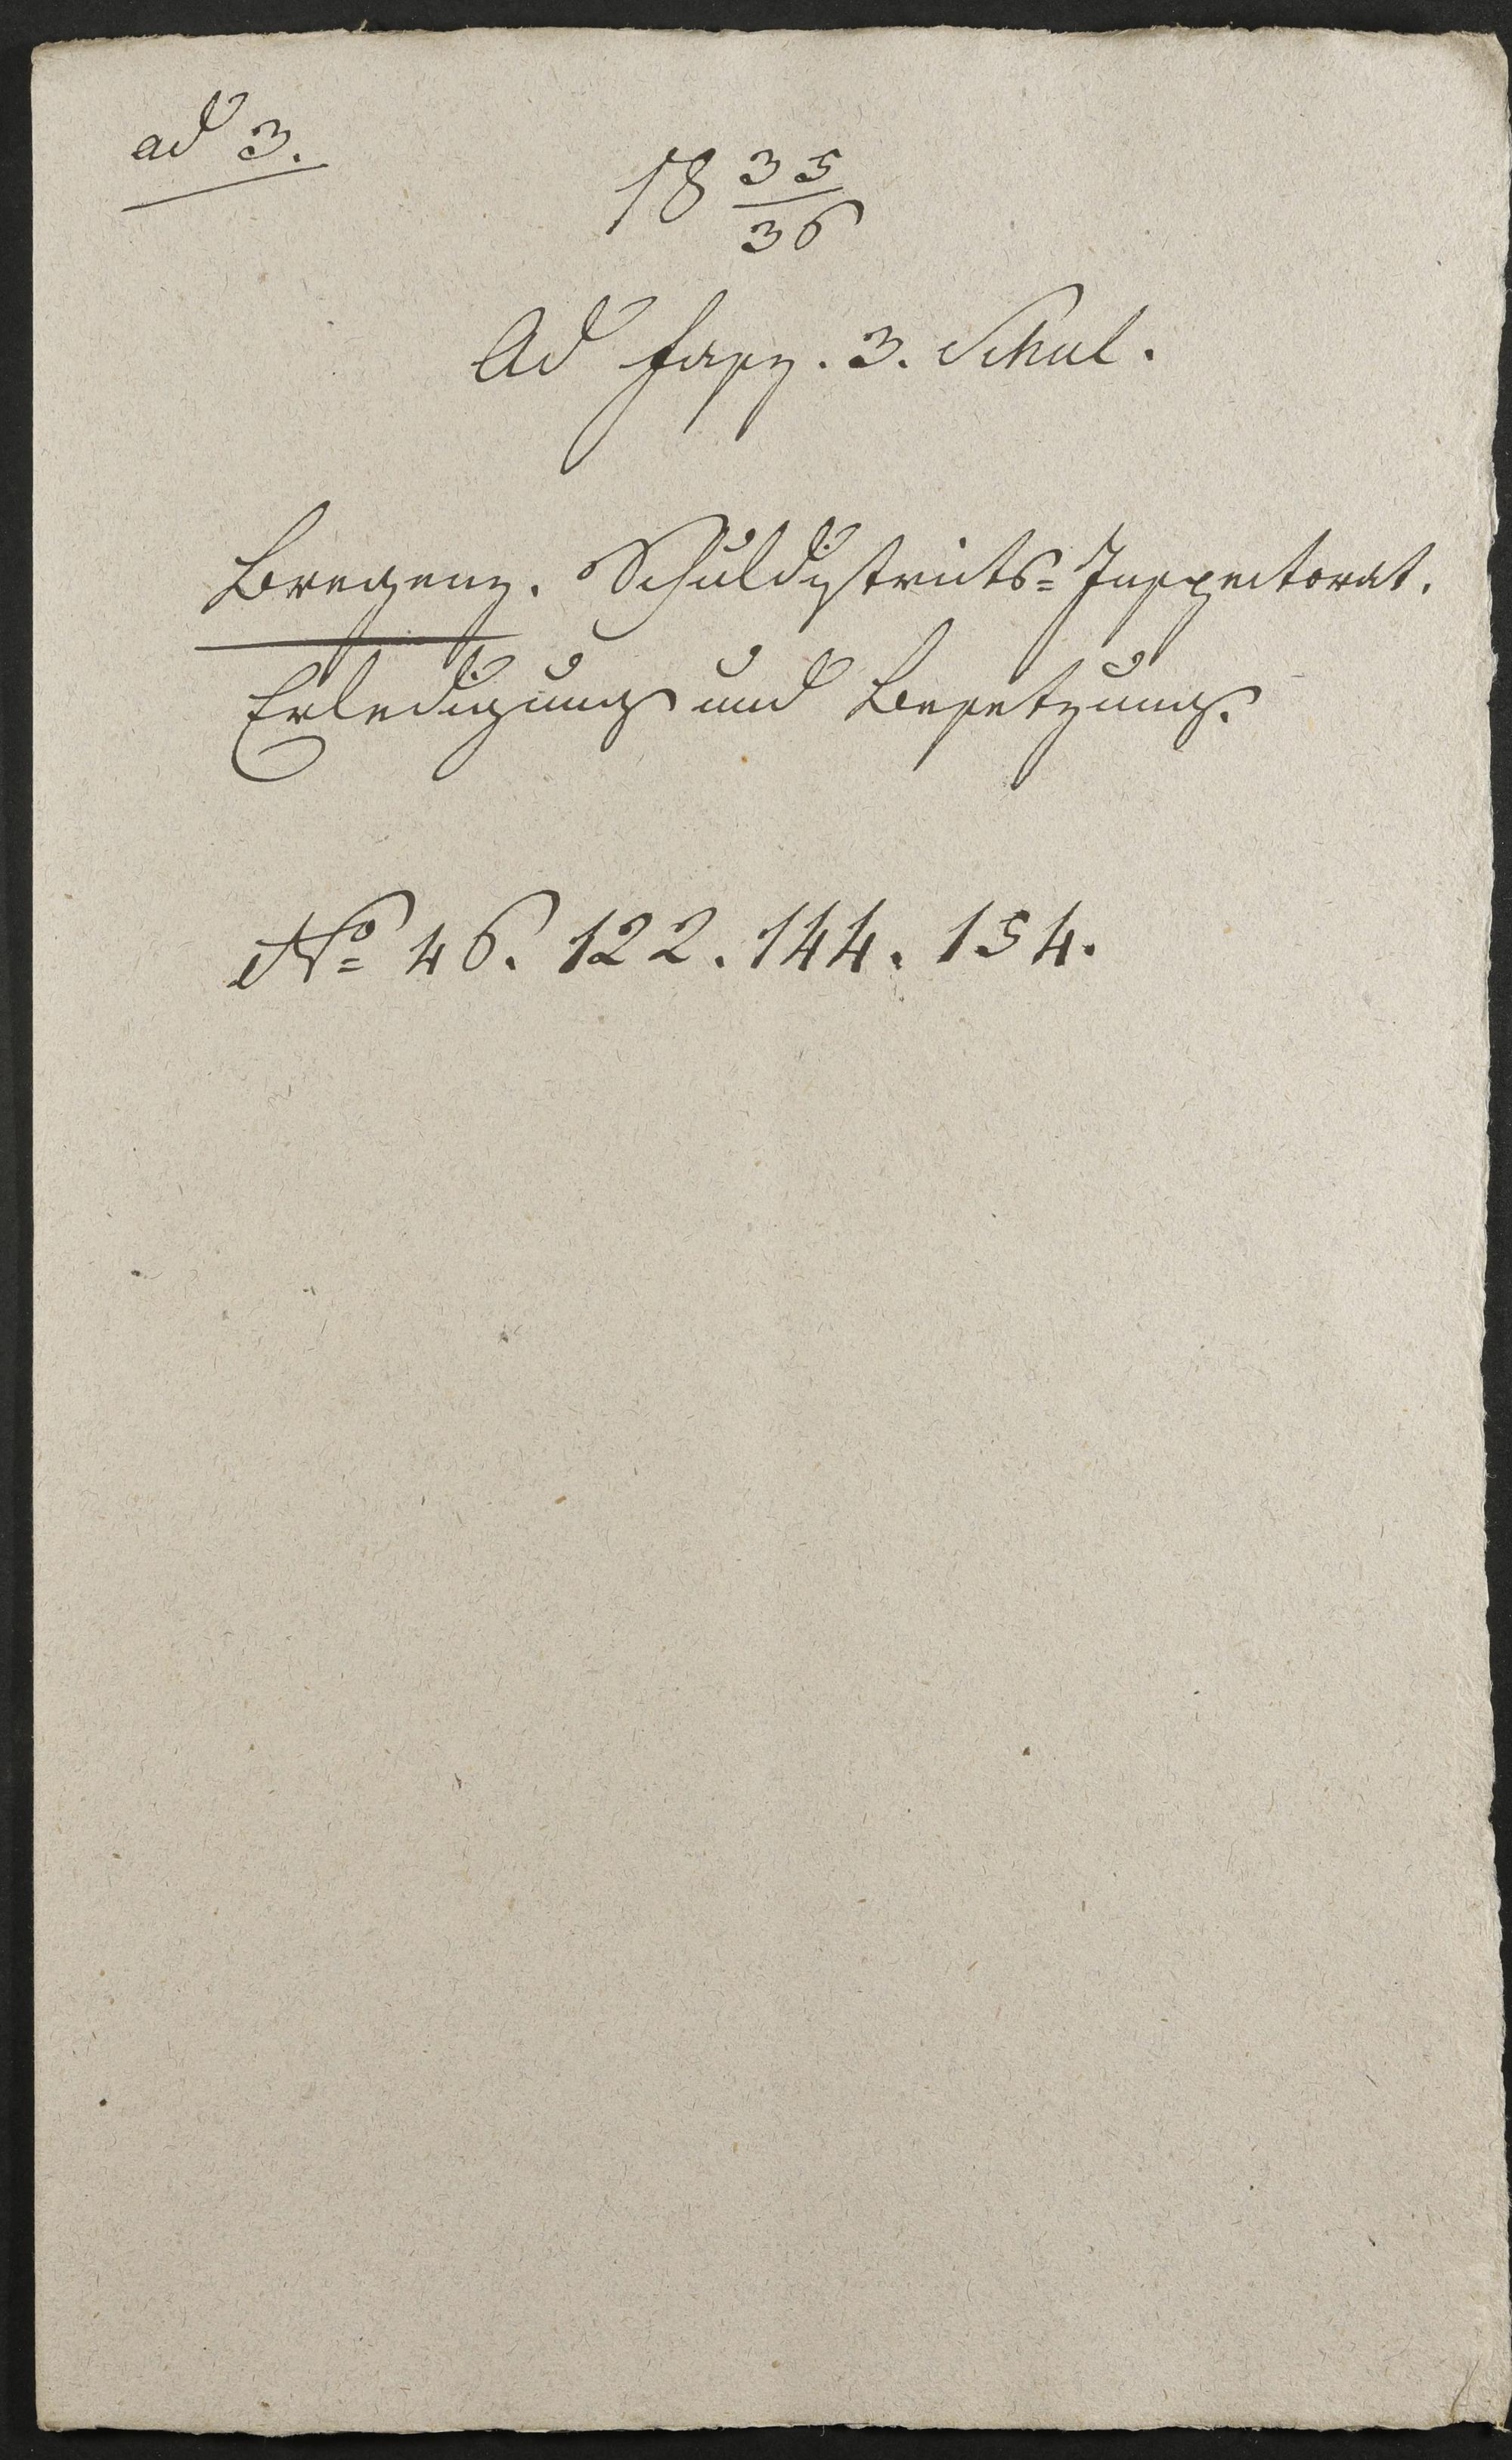 ad 3.
18 35/36
Ad fasz. 3. Schul.
Bregenz. Schuldistricts=Inspectorat.
Erledigung und Besetzung.
No 46. 122. 144. 154.